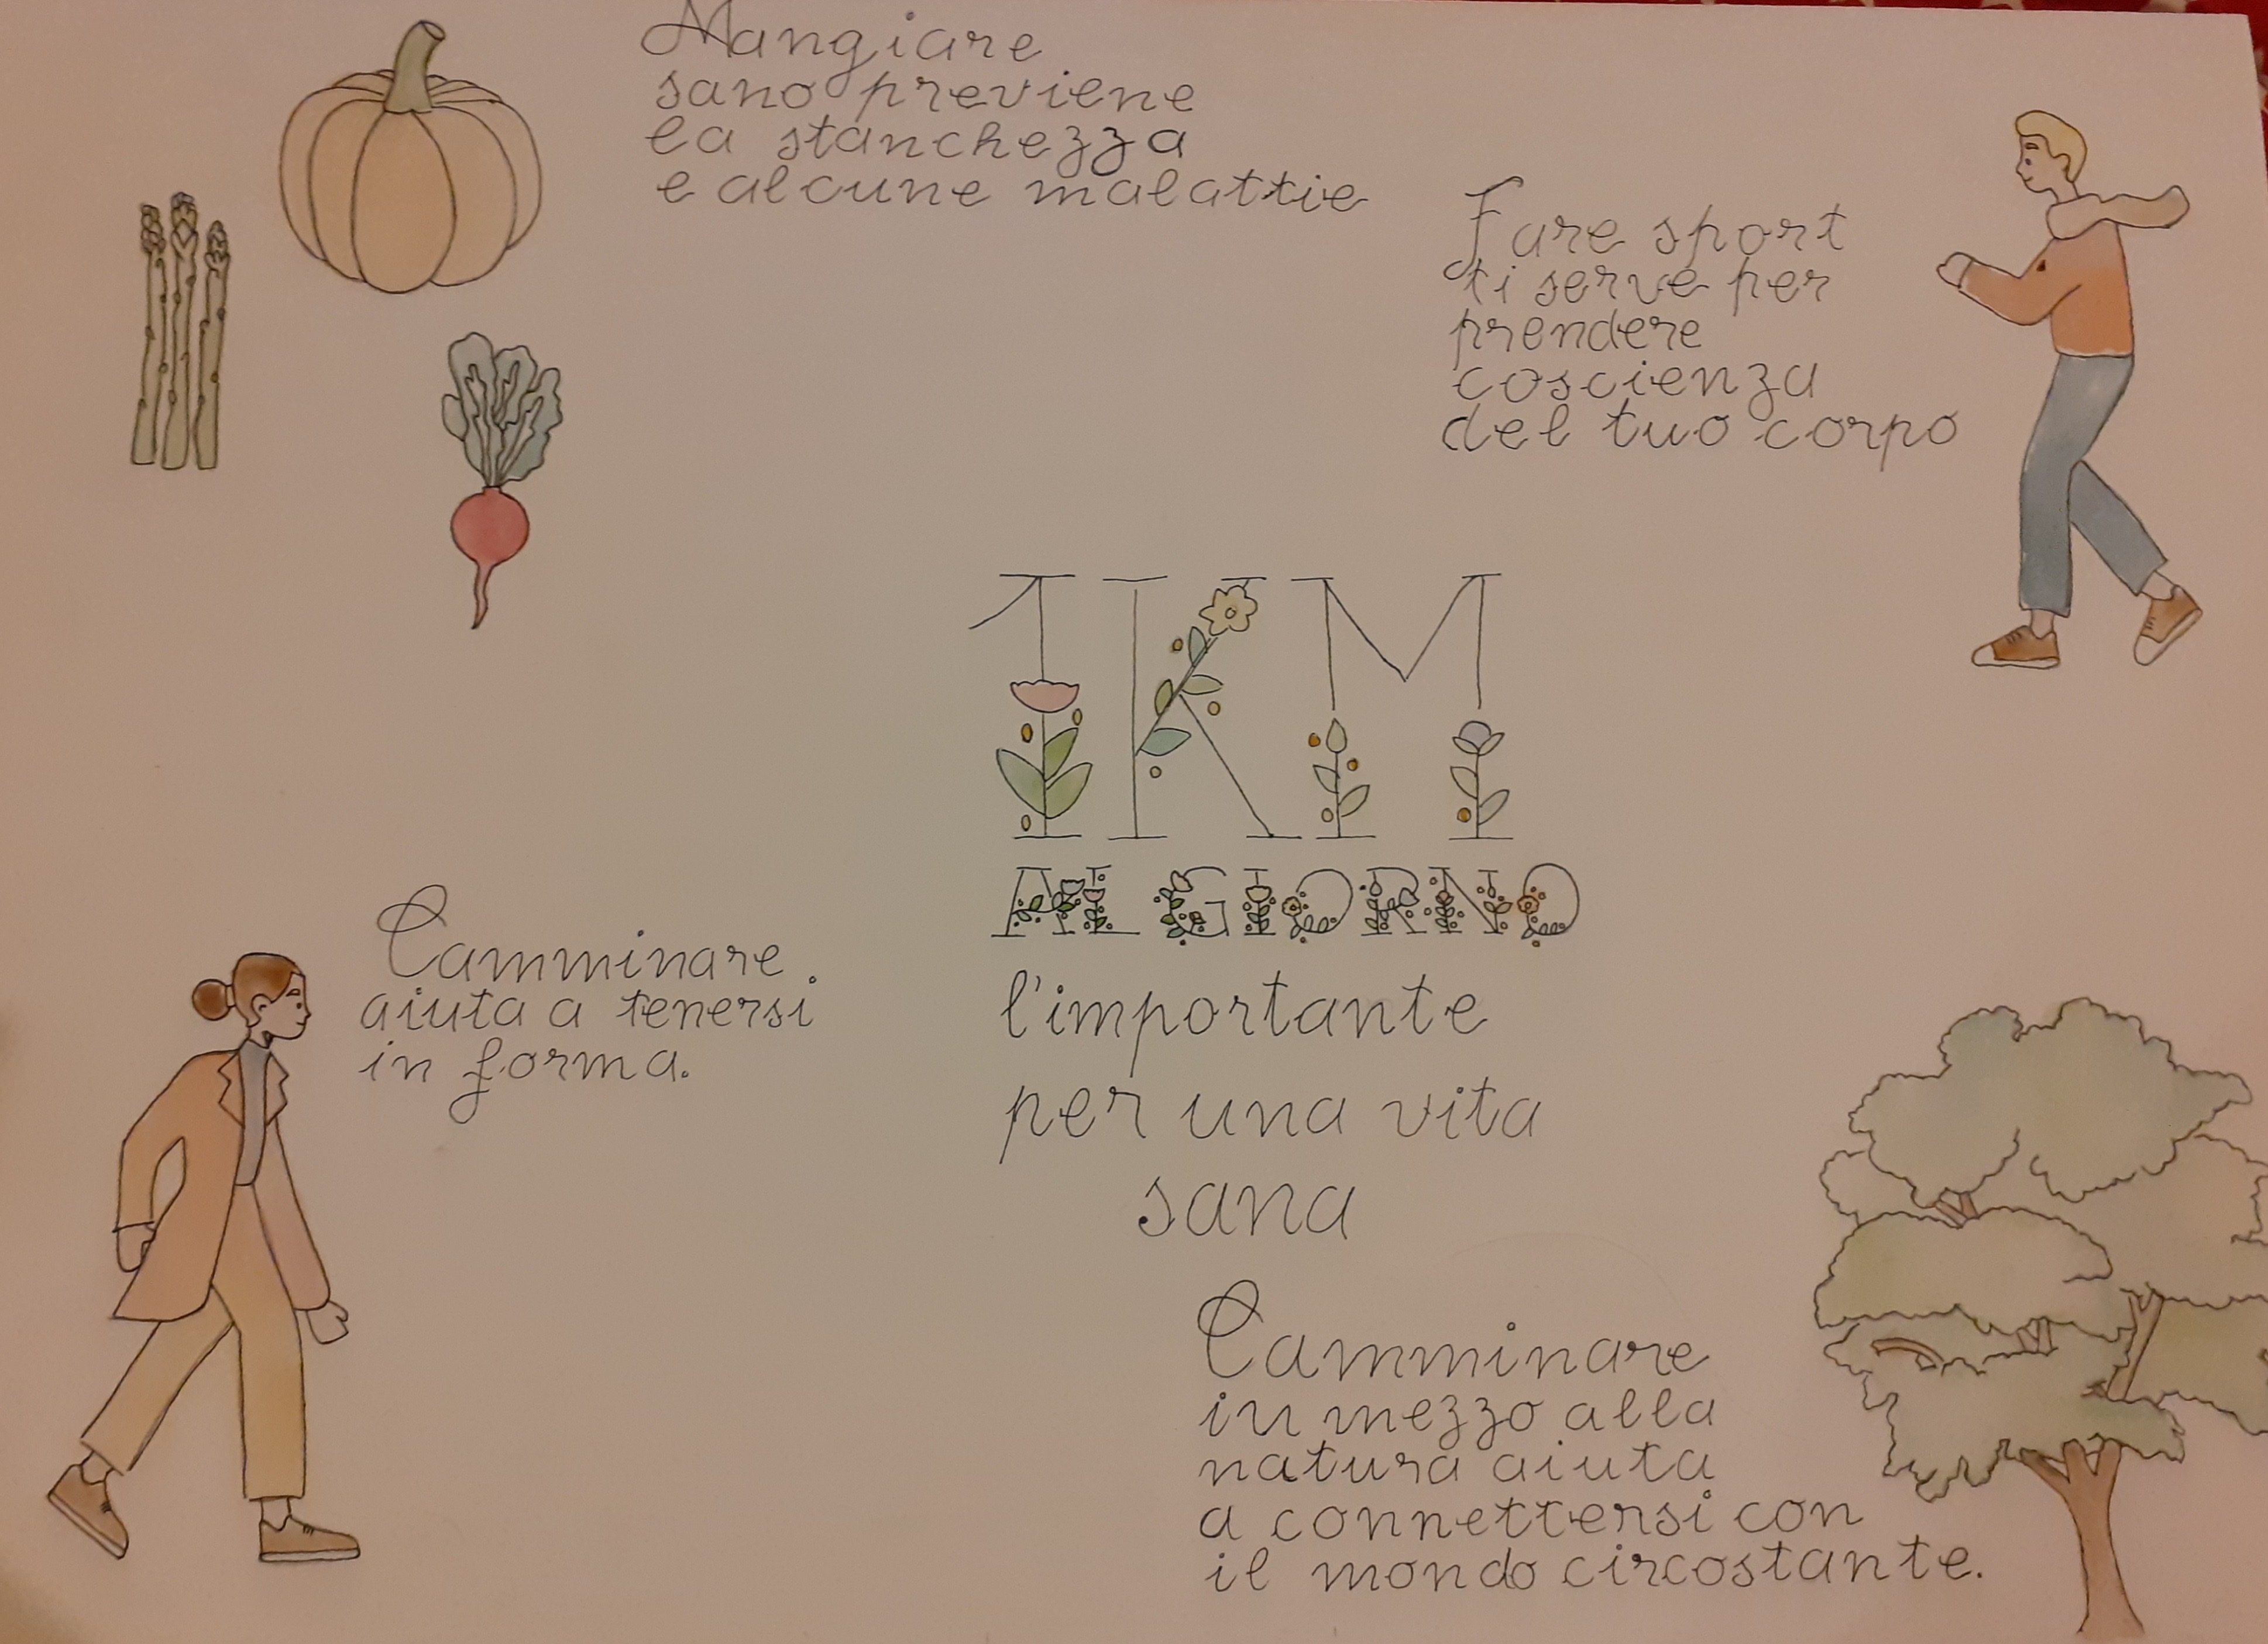 Mangiare
sano previene
la stanchezza
e alcune malattie
Fare sport
ti serve per
prendere
coscienza
del tuo corpo
1KM
AL GIORNO
l'importante
per una vita
sana
Camminare
aiuta a tenersi
in forma.
Camminare
in mezzo alla
natura aiuta
a connettersi con
il mondo circostante.